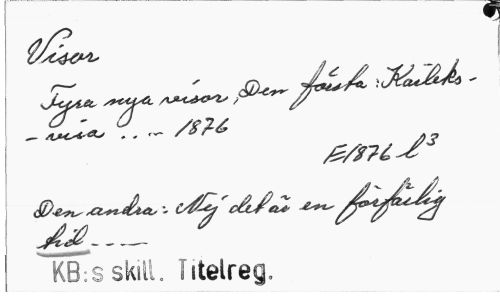 Visor
Fyra nya visor, Den första: Kärleks-
-visa .. — 1876
E1876 l³
Den andra: Nej det är en förfärlig
tid — — —
KB:s skill. Titelreg.